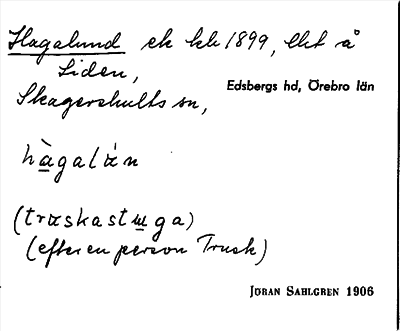 Hagalund ek kh 1899, lht å
Liden,
Skagershults sn,
Edsbergs hd, Örebro län
hàgalán
(träskastuga)
(efter en person Trusk)
JÖRAN SAHLGREN 1906